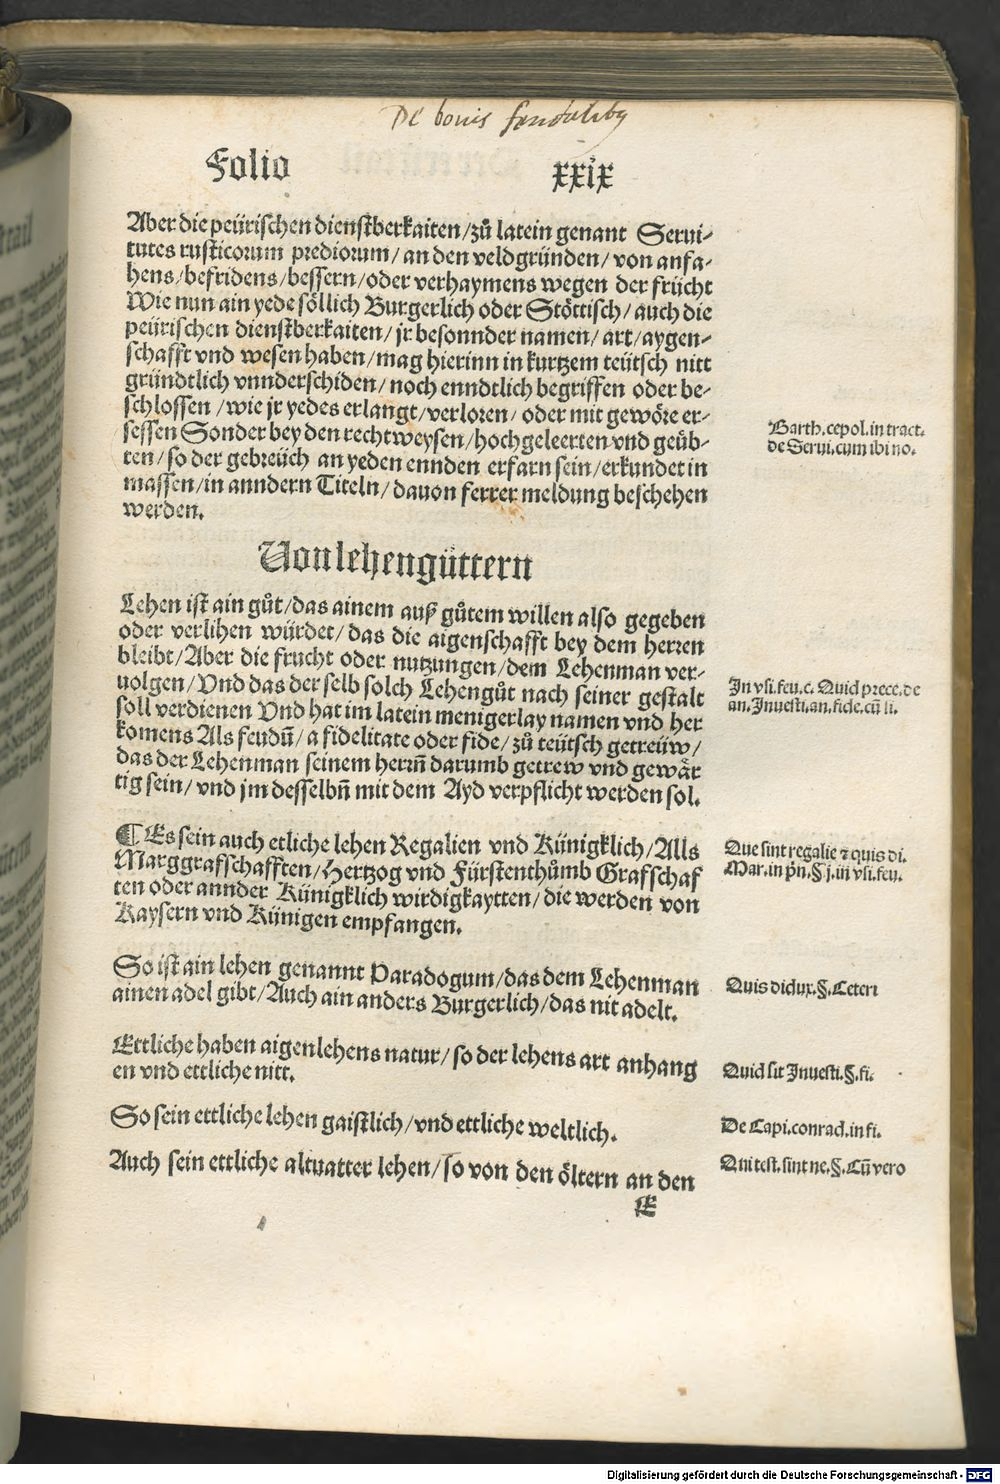 De bonis feudalibus
Folio xxix
Aber die peürischen dienstberkaiten/zů latein genant Serui-
tutes rusticorum prediorum/an den veldgründen/von anfa-
hens/befridens/bessern/oder verhaymens wegen der frücht
Wie nun ain yede söllich Burgerlich oder Stöttisch/auch die
peürischen dienstberkaiten/jr besonnder namen/art/aygen-
schafft vnd wesen haben/mag hierinn in kurtzem teütsch nitt
gründtlich vnnderschiden/noch enndtlich begriffen oder be-
schlossen/wie jr yedes erlangt/verloren/oder mit gewöre er-
sessen Sonder bey den rechtweysen/hochgeleerten vnd geüb-
ten/so der gebreüch an yeden ennden erfarn sein/erkundet in
massen/in anndern Titeln/dauon ferrer meldung beschehen
werden.
Barth.cepol.in tract.
de Serui.cum ibi no.
Von lehengüttern
Lehen ist ain gůt/das ainem auß gůtem willen also gegeben
oder verlihen würdet/das die aigenschafft bey dem herren
bleibt/Aber die frucht oder nutzungen/dem Lehenman ver-
uolgen/Vnd das der selb solch Lehengůt nach seiner gestalt
soll verdienen Vnd hat im latein menigerlay namen vnd her
komens Als feudū/a fidelitate oder fide/zů teütsch getreüw/
das der Lehenman seinem herrn̄ darumb getrew vnd gewär
tig sein/vnd jm desselbn̄ mit dem Ayd verpflicht werden sol.
In vsi.feu.c. Quid prece.de
an.Inuesti.an.fide.cū li.
¶ Es sein auch etliche lehen Regalien vnd Künigklich/Alls
Marggrafschafften/Hertzog vnd Fürstenthůmb Grafschaf
ten oder annder Künigklich wirdigkaytten/die werden von
Kaysern vnd Künigen empfangen.
Que sint regalie ꝛ quis di.
Mar.in pn̄.§ j.in vsi.feu.
So ist ain lehen genannt Paradogum/das dem Lehenman
ainen adel gibt/Auch ain anders Burgerlich/das nit adelt.
Quis diclux.§.Ceteri
Ettliche haben aigenlehens natur/so der lehens art anhang
en vnd ettliche nitt.
Quid sit Inuesti.§.fi.
So sein ettliche lehen gaistlich/vnd ettliche weltlich.
De Capi.conrad.in fi.
Auch sein ettliche altuatter lehen/so von den öltern an den
Qui test.sint ne.§.Cū vero
E
Digitalisierung gefördert durch die Deutsche Forschungsgemeinschaft - DFG